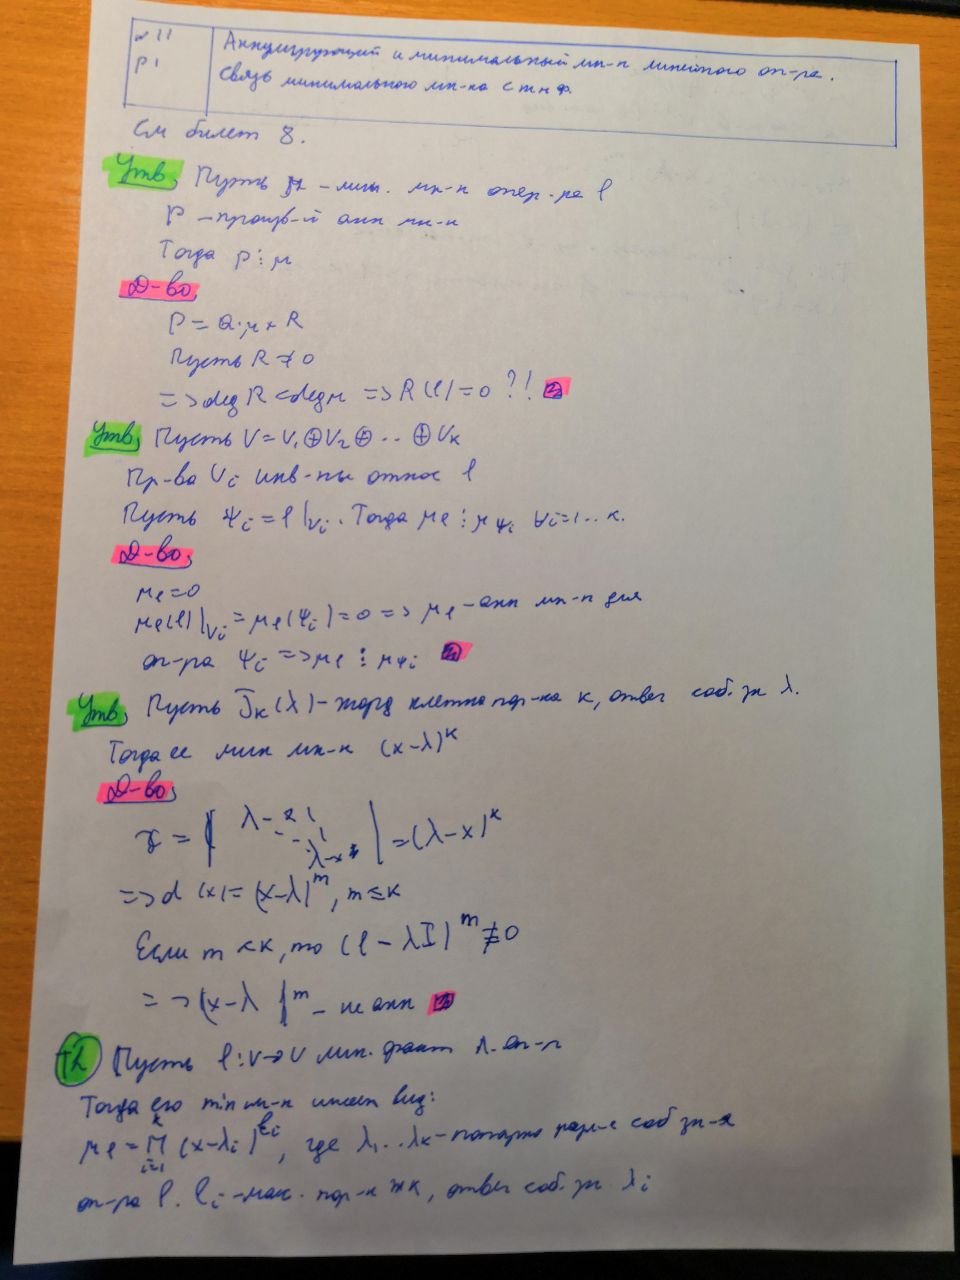 №11
Р1
Аннулирующий и минимальный мн-н линейного оп-ра.
Связь минимального мн-на с жнф.
См билет 8.
Утв. Пусть μ - мин. мн-н опер-ра φ
P - произв-й анн мн-н
Тогда P ⋮ μ
Д-во.
P = Q·μ + R
Пусть R ≠ 0
=> deg R < deg μ => R(φ) = 0 ?!
Утв. Пусть V = V₁ ⊕ V₂ ⊕ .. ⊕ Vк
Пр-ва Vᵢ инв-ны относ φ
Пусть Ψᵢ = φ|Vᵢ. Тогда μφ ⋮ μΨᵢ ∀i=1..к.
Д-во.
μφ = 0
μφ(φ)|Vᵢ = μφ(Ψᵢ) = 0 => μφ - анн мн-н для
оп-ра Ψᵢ => μφ ⋮ μΨᵢ
Утв. Пусть Jк(λ) - жорд клетка пор-ка к, отвеч соб. зн λ.
Тогда ее мин мн-н (x-λ)ᵏ
Д-во.
= | λ-x 1 λ-x | = (λ-x)ᵏ
=> d(x) = (x-λ)ᵐ, m ≤ к
Если m < к, то (φ - λI)ᵐ ≠ 0
=> (x-λ)ᵐ - не анн
Th Пусть φ: V→V лин. л. оп-р
Тогда его min мн-н имеет вид:
μφ = ∏ᵏᵢ₌₁ (x-λᵢ)^ℓᵢ, где λ₁..λк - попарно разл-е соб зн-я
оп-ра φ. ℓᵢ - мак. пор-к жк, отвеч соб. зн. λᵢ